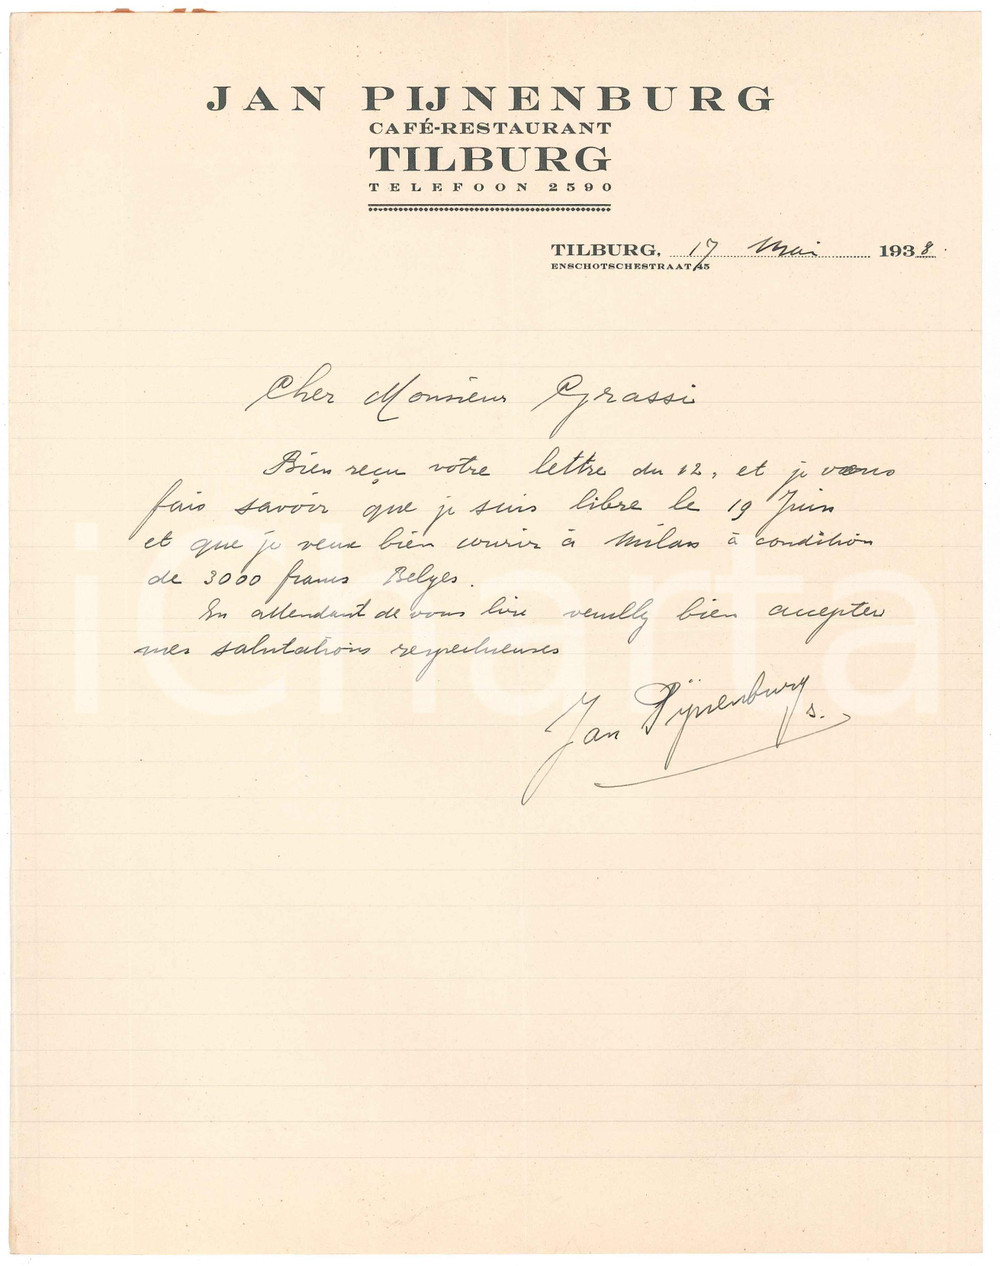 JAN PIJNENBURG
CAFÉ-RESTAURANT
TILBURG
TELEFOON 2590
TILBURG, 17 Mai 1938.
ENSCHOTSCHESTRAAT 45
Cher Monsieur Grassi
Bien reçu votre lettre du 12, et je vous
fais savoir que je suis libre le 19 Juin
et que je veux bien courir à Milan à condition
de 3000 francs Belges.
En attendant de vous lire veuilly bien accepter
mes salutations respectueuses
Jan Pijnenburg
s.
iCharta